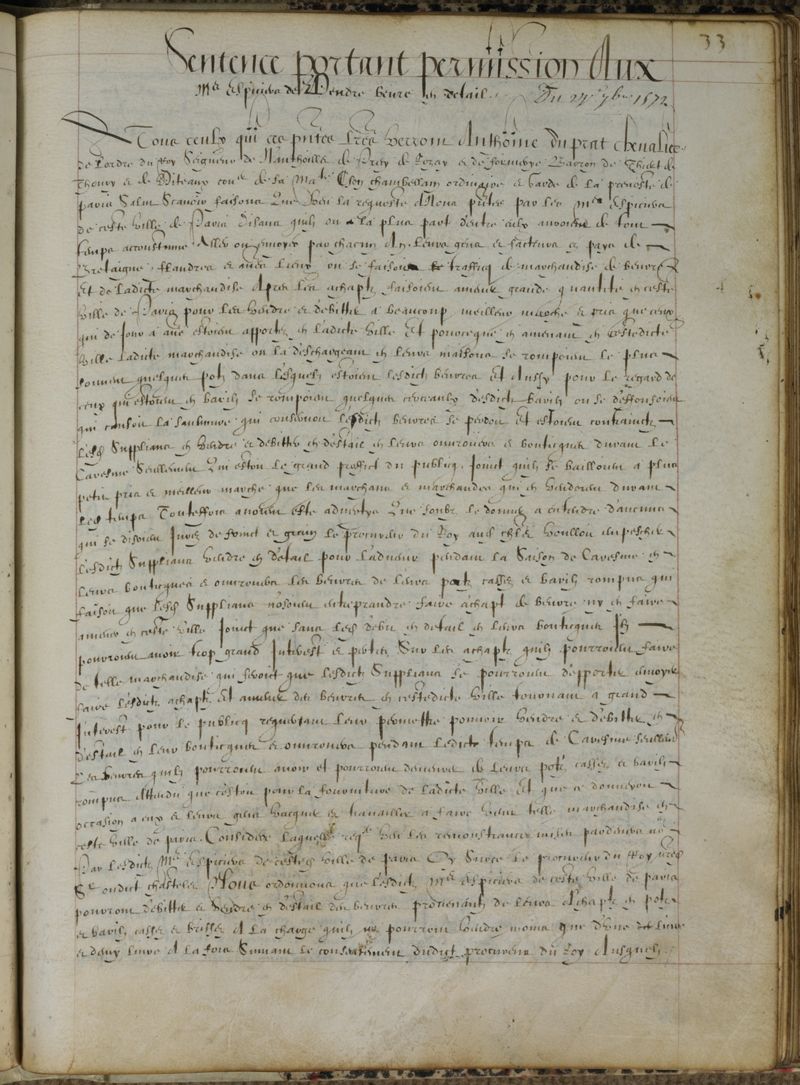 33
Sentence portant permission Aux
Mes Espiciers de Vendre beure en detail. Du 27e 7bre 1572
A Tous ceulx qui ces pntes lres verront Anthoine Duprat chevalier
de l'ordre du Roy Seigneur de Nanthoillet de Precy de Rozay et de formeries Baron de Thiert de
Thoury et de Viteaux coner de sa Mate Et son chambellam ordinaire et garde de la prevoste de
paris Salut Scavoir faisons Que Veu la requeste A Nous pntee par les mes Espiciers
de ceste Ville de Paris disans quilz ou la plus part dentre eulx avoient de tout
temps accoustumé Aller ou envoyer par chacun An leurs gens et facteurs es pays de
Bretaigne flandres et aues lieux ou se faisoit le traffiq de marchandise de beure
Et de ladicte marchandise Apres les achaptz faisoient amener grande quantite en ceste
Ville de Paris pour les vendre et debitter A beaucoup meilleur marche et pris que ceux
qui de jour a aue estoient apportez en ladicte Ville Et pourceque en amenant en cestedicte
Ville ladicte marchandise ou la deschargeant en leurs maisons se rompoient le plus
souvent quelques potz dans lesquelz estoient lesdictz beurres Et Aussy pour le regard de
ceux qui estoient en barilz se rompoient quelques cerceaulx desdictz barilz ou se deffonsoient
qui causoit la saulmure qui conservoit lesdictz beurres se perdoit Et estoient contrainctz
lesdz Supplians en vendre et debitter en destail en leurs ouvrouers et bouticques durant le
Caresme Seullement Qui estoit le grand proffict du publicq Joinct quilz se bailloient a plus
petit pris et meilleur marche que les marchans et marchandes qui en vendoient durant
led temps Touteffois avoient este advertys Que soubz le donné a entendre daucuns
qui se disoient Jurez de fruict et grain le procureur du Roy aud chlet voulloit empescher
lesdictz Supplians vendre en detail pour ladvenir pendant la Saison de Caresme en
leurs bouticques et ouvrouers les beurres de leurs potz cassez et barilz rompus qui
faisoit que lesdz Supplians nosoient entreprandre faire achapt de beurre ny en faire
amener en ceste Ville Joinct que sans led debit en detail en leurs bouticques Ilz
pourroient avoir trop grand Interest et perte Sur les achaptz quilz pourroient faire
de telle marchandise qui seroit que lesdictz Supplians se pourroient depporter envoyer
faire lesdictz achaptz Et amener des beurres en cestedicte Ville tournant a grand
Interest pour le publicq requerant leur permettre pouvoir vendre et debitter en
destail en leurs bouticques et ouvrouers pendant ledict temps de Caresme seullement
Les beurres quilz pourroient avoir et pourroient demeurer de leurs potz cassez et barilz
rompus Attendu que cestoit pour la fourniture de ladicte Ville Et que ce donneroit
occasion a eux et leurs gens vacquer et travailler a faire venir telle marchandise en
ceste Ville de paris Consideré Laquelle reqte Veu les remonstrances mises pardevers no
Par lesdictz Mes Espiciers de cested Ville de paris Oy Surce le procureur du Roy nred
Sr oudict chastelet Nous ordonnons que lesdictz Mes Espiciers de ceste Ville de paris
pourront debitter et Vendre en destail des beurres provenants de leurs Achaptz en potz
et barilz cassez et brisez A la charge quilz ne pourront vendre moins que dune livre
et deux livres A la fois Suivant le consentement dudict procureur du Roy Ausquelz